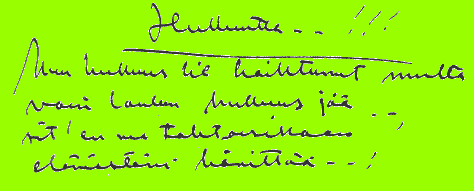 Hulluutta -- !!!
Muu hulluus lie haihtunut multa
vain laulun hulluus jää --
sit' en ma tahtoisikaan
elämästäin hävittää --!